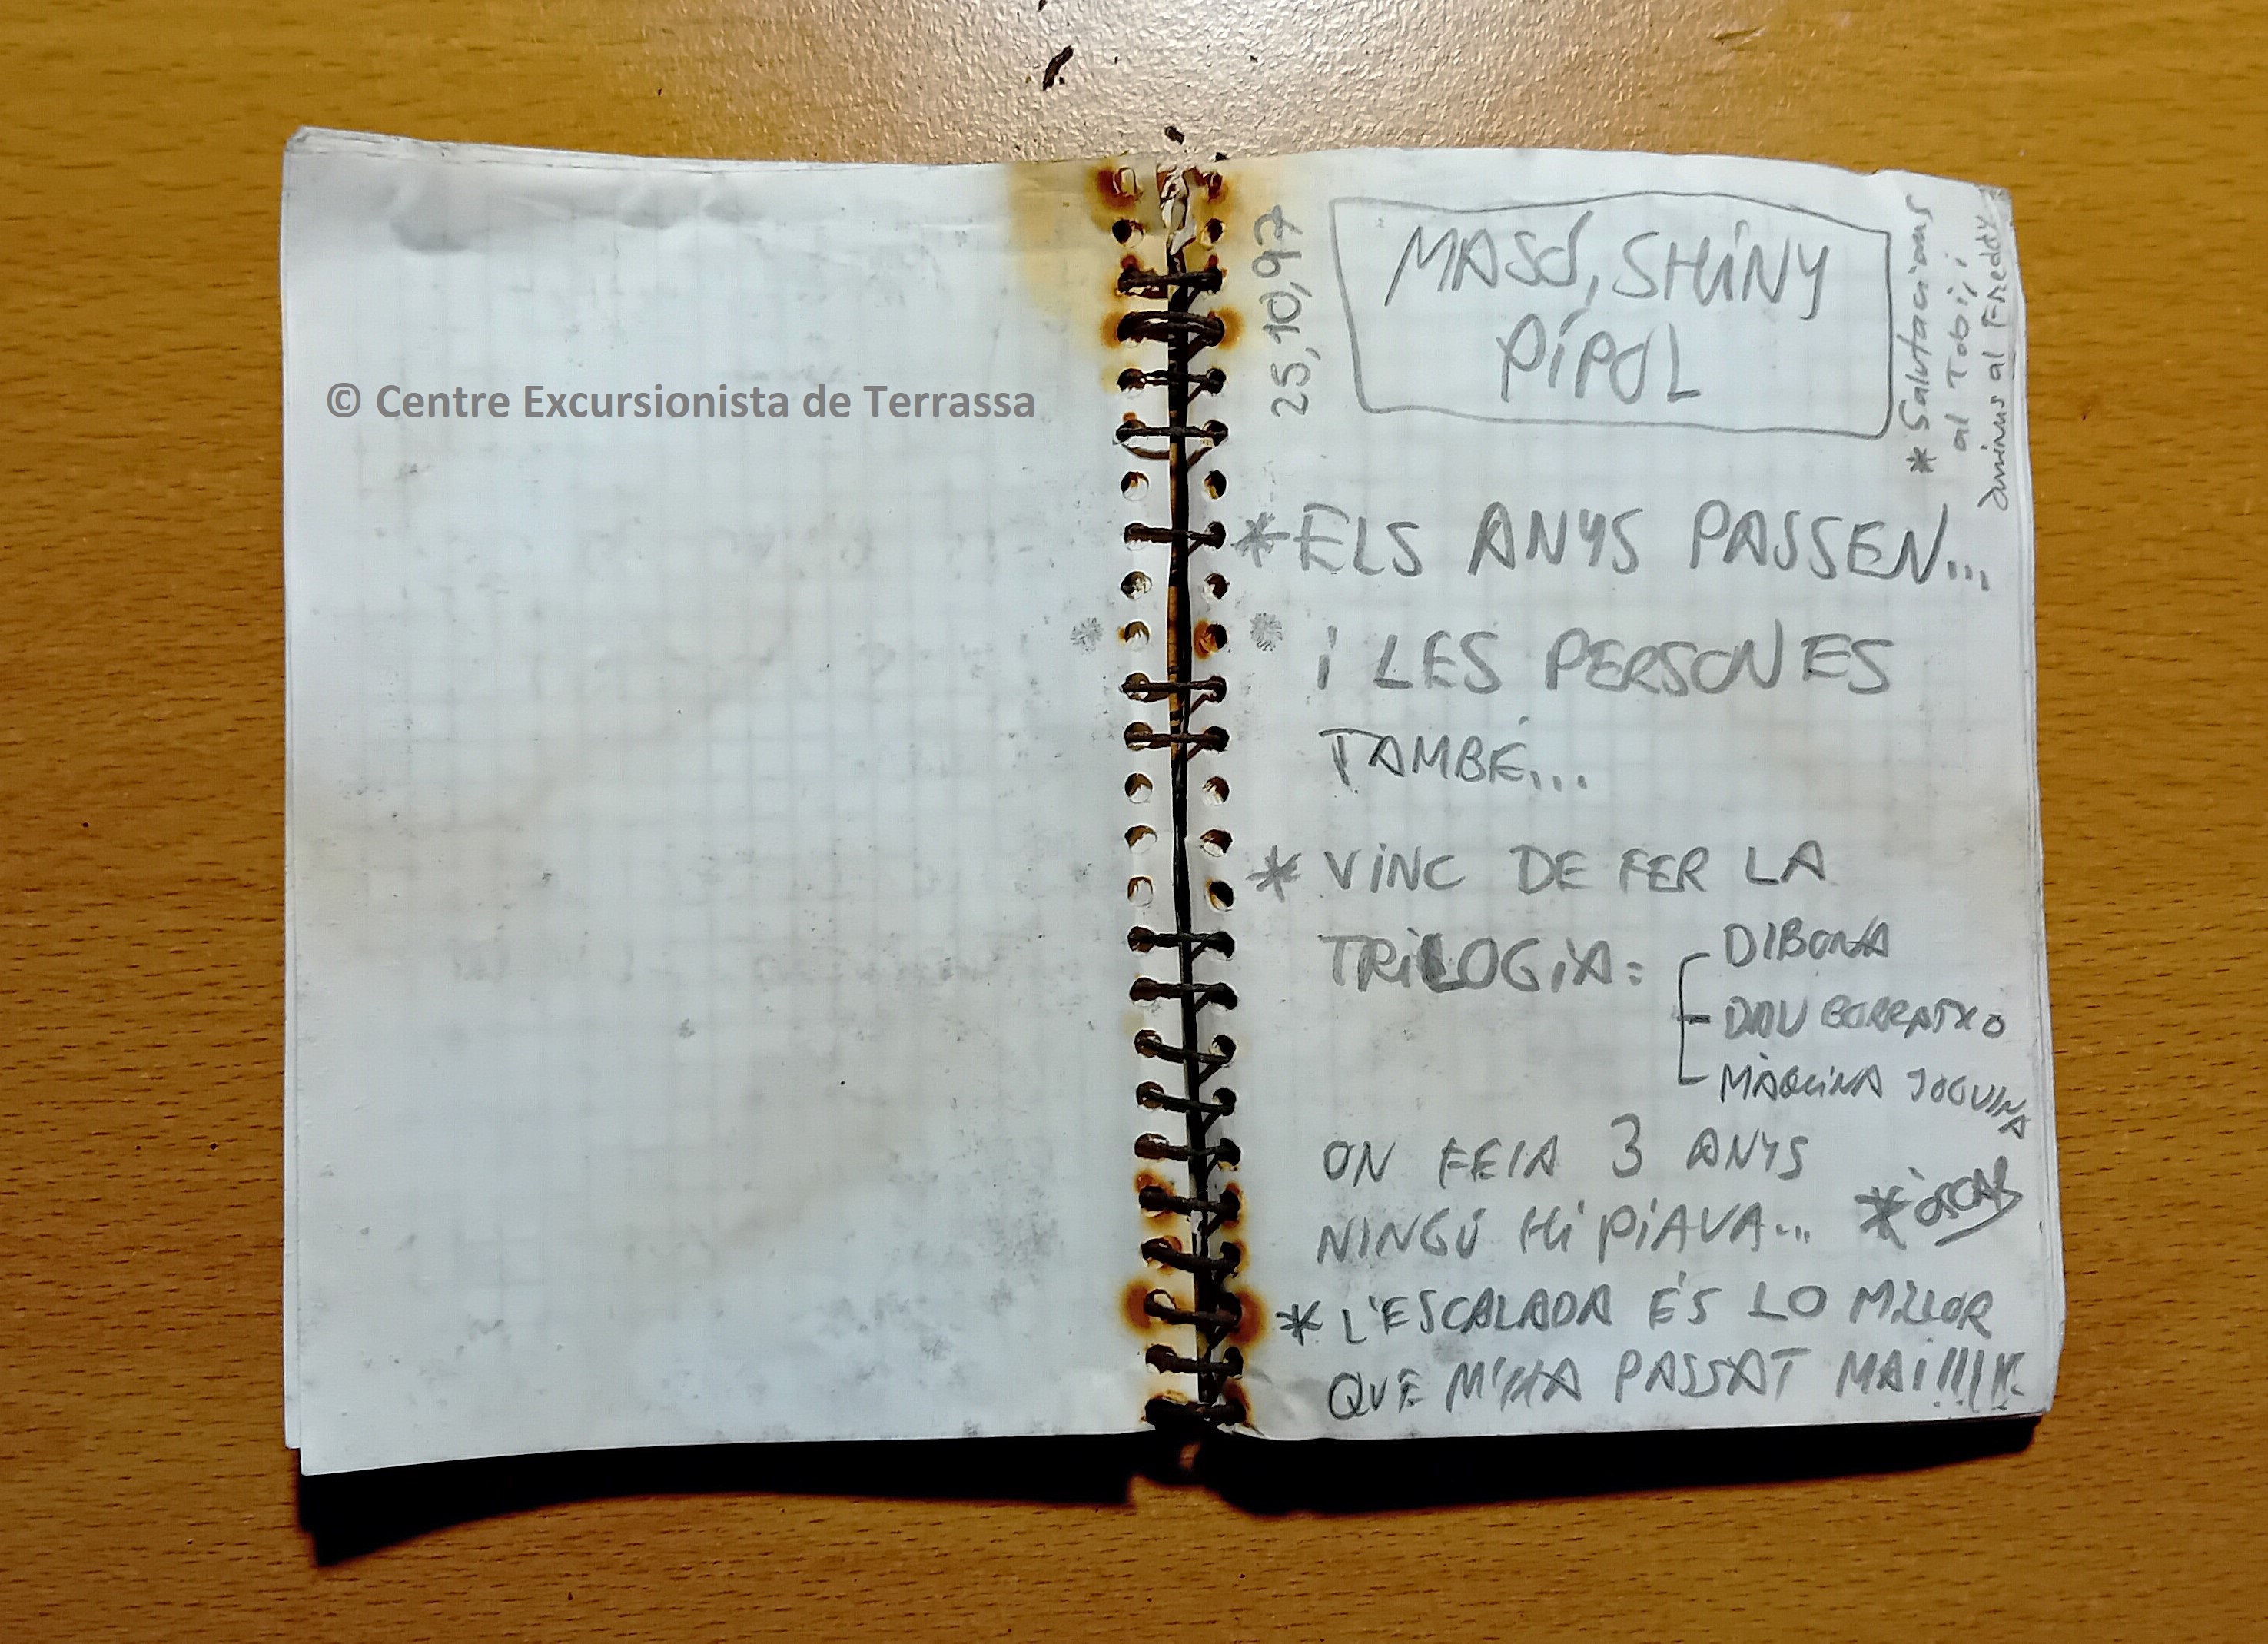 © Centre Excursionista de Terrassa
25,10,97
MASÓ, SHINY
PÍPOL
* Salutacions
al Tobi, i
ànims al Freddy
* ELS ANYS PASSEN...
i LES PERSONES
TAMBÉ...
* VINC DE FER LA
TRILOGIA:
DIBONA
DAU BORRATXO
MÀQUINA JOGUINA
ON FEIA 3 ANYS
NINGÚ HI PIAVA...
* ÒSCAR
* L'ESCALADA ÉS LO MILLOR
QUE M'HA PASSAT MAI!!!!!